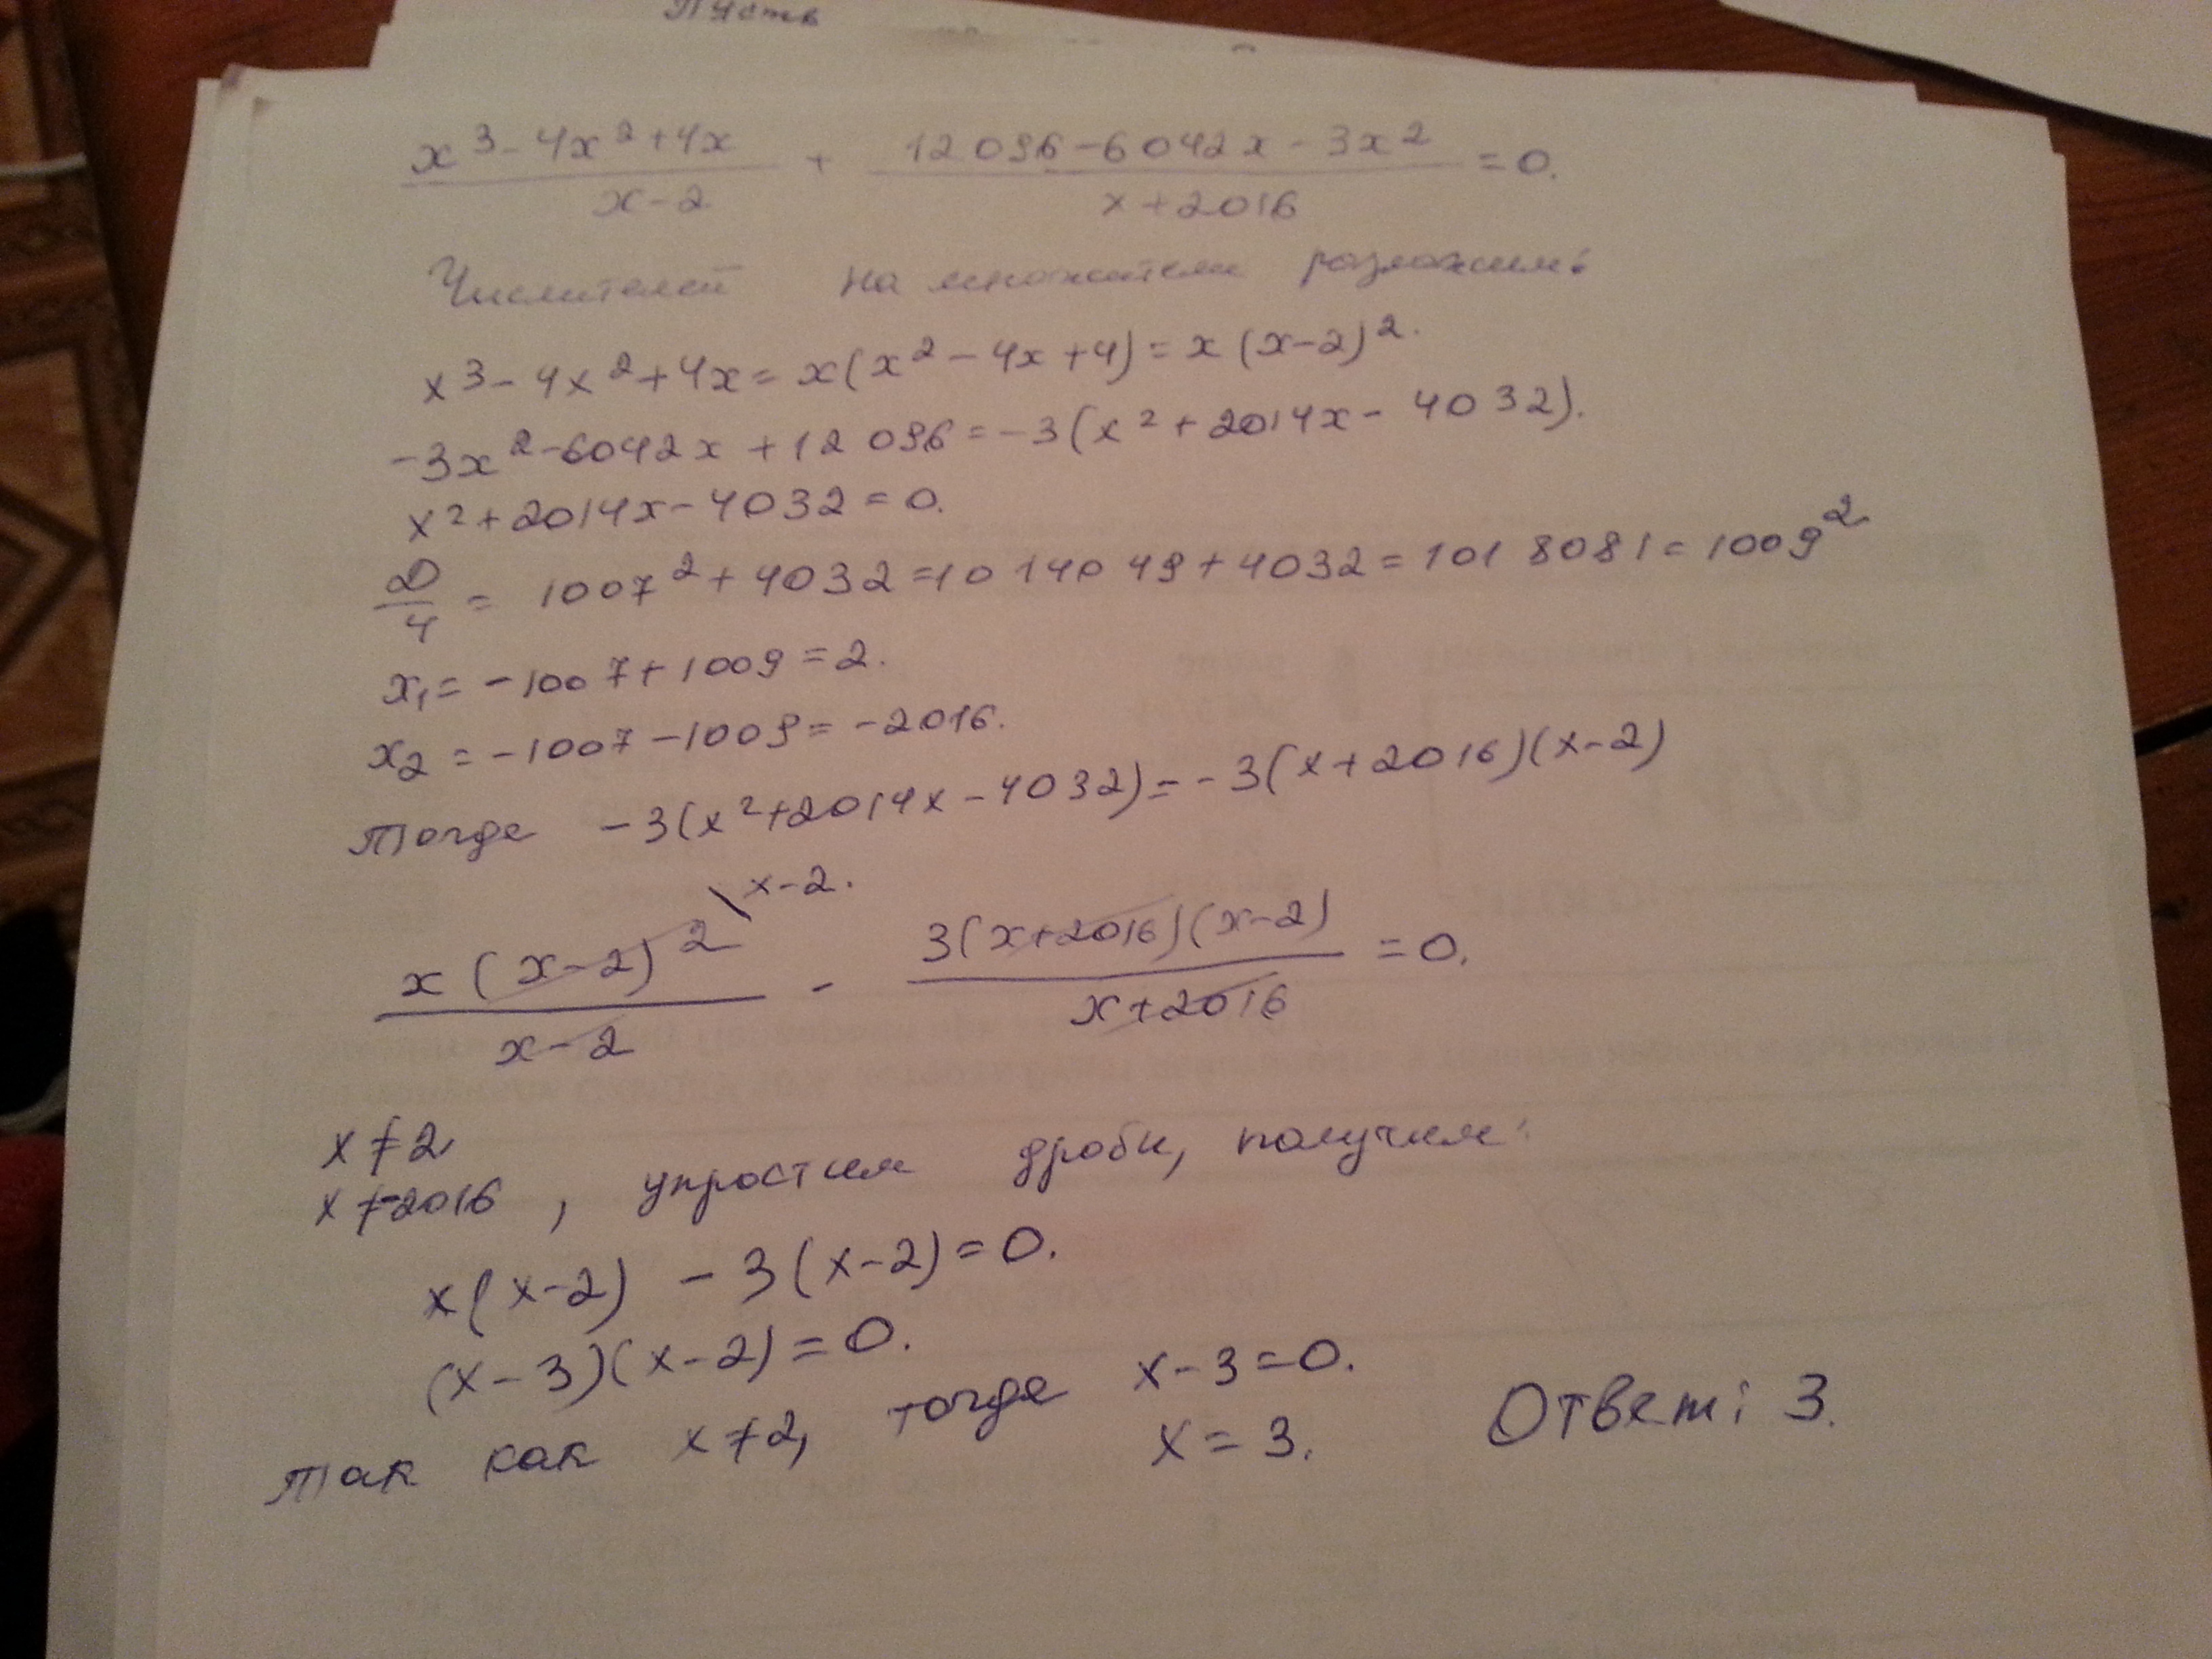 Пусть
x³-4x²+4x / x-2 + 12096-6042x-3x² / x+2016 = 0.
Числителей на множители разложим:
x³-4x²+4x = x(x²-4x+4) = x(x-2)².
-3x²-6042x+12096 = -3(x²+2014x-4032).
x²+2014x-4032 = 0.
D/4 = 1007²+4032 = 1014049+4032 = 1018081 = 1009²
x₁ = -1007+1009 = 2.
x₂ = -1007-1009 = -2016.
Тогда -3(x²+2014x-4032) = -3(x+2016)(x-2)
x-2.
x(x-2)² / x-2 - 3(x+2016)(x-2) / x+2016 = 0.
x≠2
x≠-2016, упростим дроби, получим:
x(x-2) - 3(x-2) = 0.
(x-3)(x-2) = 0.
Так как x≠2, тогда x-3=0.
x=3.
Ответ: 3.